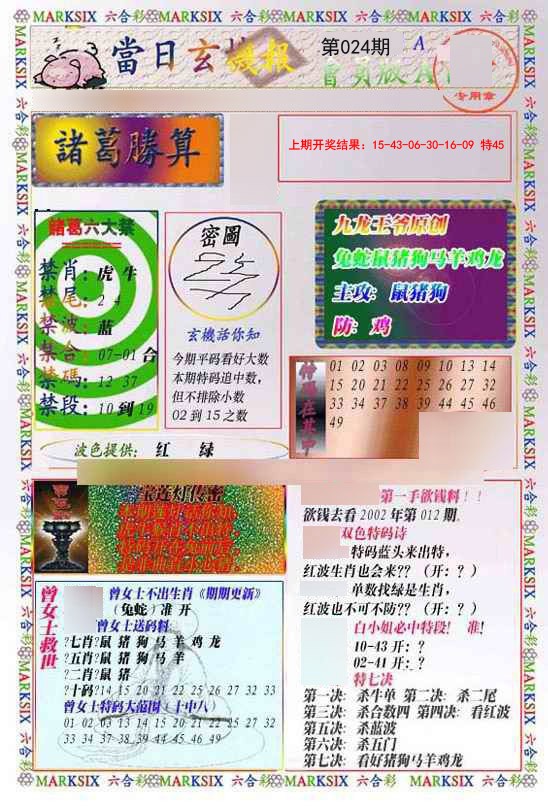 MARKSIX 六合彩 MARKSIX 六合彩 MARKSIX 六合彩 MARKSIX 六合彩 MARKSIX 六合彩
當日玄機報
第024期
A
會員版A
专用章
諸葛勝算
上期开奖结果：15-43-06-30-16-09 特45
諸葛六大禁
禁肖：虎 牛
禁尾：2 4
禁波：蓝
禁合：07-01合
禁碼：12 37
禁段：10到19
密圖
玄機活你知
今期平码看好大数
本期特码追中数，
但不排除小数
02到15之数
九龙王爷原创
兔蛇鼠猪狗马羊鸡龙
主攻：鼠猪狗
防：鸡
01 02 03 08 09 10 13 14
15 20 21 22 25 26 27 32
33 34 37 38 39 44 45 46
49
波色提供： 红 绿
宝莲灯传密
曾女士救世
曾女士不出生肖《期期更新》
（兔蛇）准 开
曾女士送码料
?七肖?鼠 猪 狗 马 羊 鸡 龙
?五肖?鼠 猪 狗 马 羊
?二肖?鼠 猪
?十码?14 15 20 21 22 25 26 27 32 33
曾女士特码大范围（十中八）
01 02 03 13 14 15 20 21 22 25 27 32
33 34 37 38 39 44 45 46 49
第一手欲钱料！！
欲钱去看2002年第012期.
双色特码诗
特码蓝头来出特，
红波生肖也会来??（开：？）
单数找绿是生肖，
红波也不可不防??（开：？）
白小姐必中特段！ 准!
10-43开：？
02-41开：？
特七决
第一决：杀牛单 第二决：杀二尾
第三决：杀合数四 第四决：看红波
第五决：杀蓝波
第六决：杀五门
第七决：看好猪狗马羊鸡龙
MARKSIX 六合彩 MARKSIX 六合彩 MARKSIX 六合彩 MARKSIX 六合彩 MARKSIX 六合彩